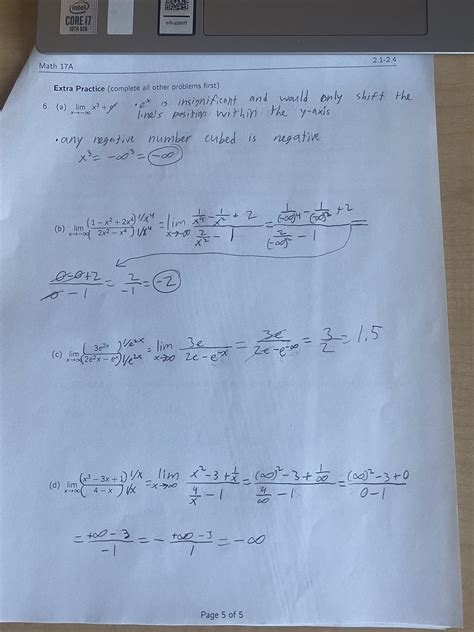 intel
CORE i7
10TH GEN
eSupport
Math 17A 2.1-2.4
Extra Practice (complete all other problems first)
6. (a) lim x→-∞ x³ + • eˣ is insignificant and would only shift the
line's position within the y-axis
• any negative number cubed is negative
x³ = -∞³ = -∞
(b) lim x→-∞ (1 - x² + 2x⁴)1/x⁴ / (2x² - x⁴)1/x⁴ = lim x→-∞ (1/x⁴ - 1/x² + 2) / (2/x² - 1) = (1/(-∞)⁴ - 1/(-∞)² + 2) / (2/(-∞)² - 1) =
(0-0+2) / (0-1) = 2/-1 = -2
(c) lim x→∞ (3e²ˣ)1/e²ˣ / (2e²ˣ - eˣ)1/e²ˣ = lim x→∞ 3e / (2e - e⁻ˣ) = 3e / (2e - e^-∞) = 3/2 = 1.5
(d) lim x→∞ (x³ - 3x + 1)1/x / (4 - x)1/x = lim x→∞ (x² - 3 + 1/x) / (4/x - 1) = ((∞)² - 3 + 1/∞) / (4/∞ - 1) = ((∞)² - 3 + 0) / (0 - 1)
= (+∞ - 3) / -1 = - (+∞ - 3) / 1 = -∞
Page 5 of 5